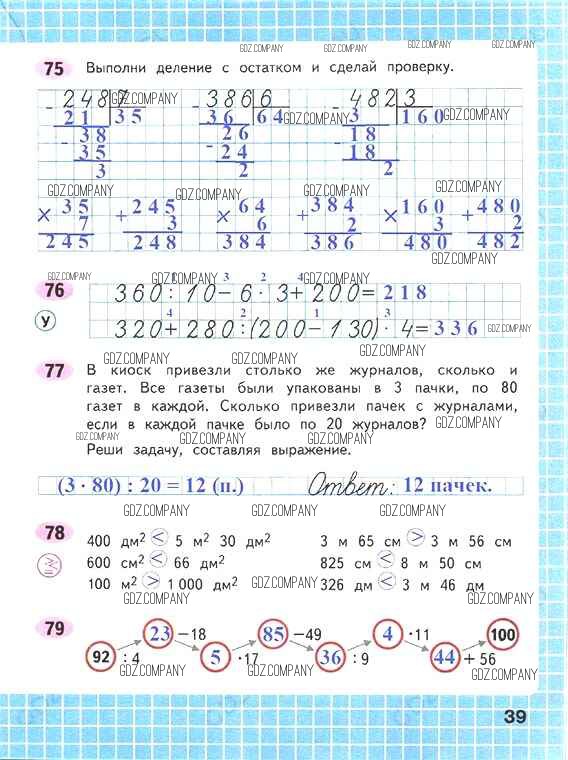 GDZ.COMPANY GDZ.COMPANY GDZ.COMPANY GDZ.COMPANY
75 Выполни деление с остатком и сделай проверку.
- 248 7 GDZ.COMPANY - 386 6 - 482 3
21 35 36 64 GDZ.COMPANY 3 160 GDZ.COMPANY
- 38 - 26 - 18
35 24 18
3 2 2
GDZ.COMPANY GDZ.COMPANY GDZ.COMPANY GDZ.COMPANY
× 35 + 245 × 64 + 384 × 160 + 480
7 3 6 2 3 2
245 248 384 386 480 482
GDZ.COMPANY
GDZ.COMPANY GDZ.COMPANY GDZ.COMPANY
1 3 2 4
76 360 : 10 − 6 · 3 + 200 = 218
4 2 1 3
У 320 + 280 : (200 − 130) · 4 = 336 GDZ.COMPANY
GDZ.COMPANY GDZ.COMPANY GDZ.COMPANY
77 В киоск привезли столько же журналов, сколько и
газет. Все газеты были упакованы в 3 пачки, по 80
газет в каждой. Сколько привезли пачек с журналами,
если в каждой пачке было по 20 журналов? GDZ.COMPANY
GDZ.COMPANY GDZ.COMPANY GDZ.COMPANY
Реши задачу, составляя выражение.
(3 · 80) : 20 = 12 (п.) Ответ: 12 пачек.
GDZ.COMPANY GDZ.COMPANY GDZ.COMPANY GDZ.COMPANY
78 400 дм² < 5 м² 30 дм² 3 м 65 см > 3 м 56 см
600 см² < 66 дм² 825 см < 8 м 50 см
100 м² > 1 000 дм² GDZ.COMPANY 326 дм < 3 м 46 дм
GDZ.COMPANY GDZ.COMPANY
79 23 −18 85 −49 4 ·11 100
92 : 4 5 ·17 36 : 9 44 + 56
GDZ.COMPANY GDZ.COMPANY GDZ.COMPANY GDZ.COMPANY
39